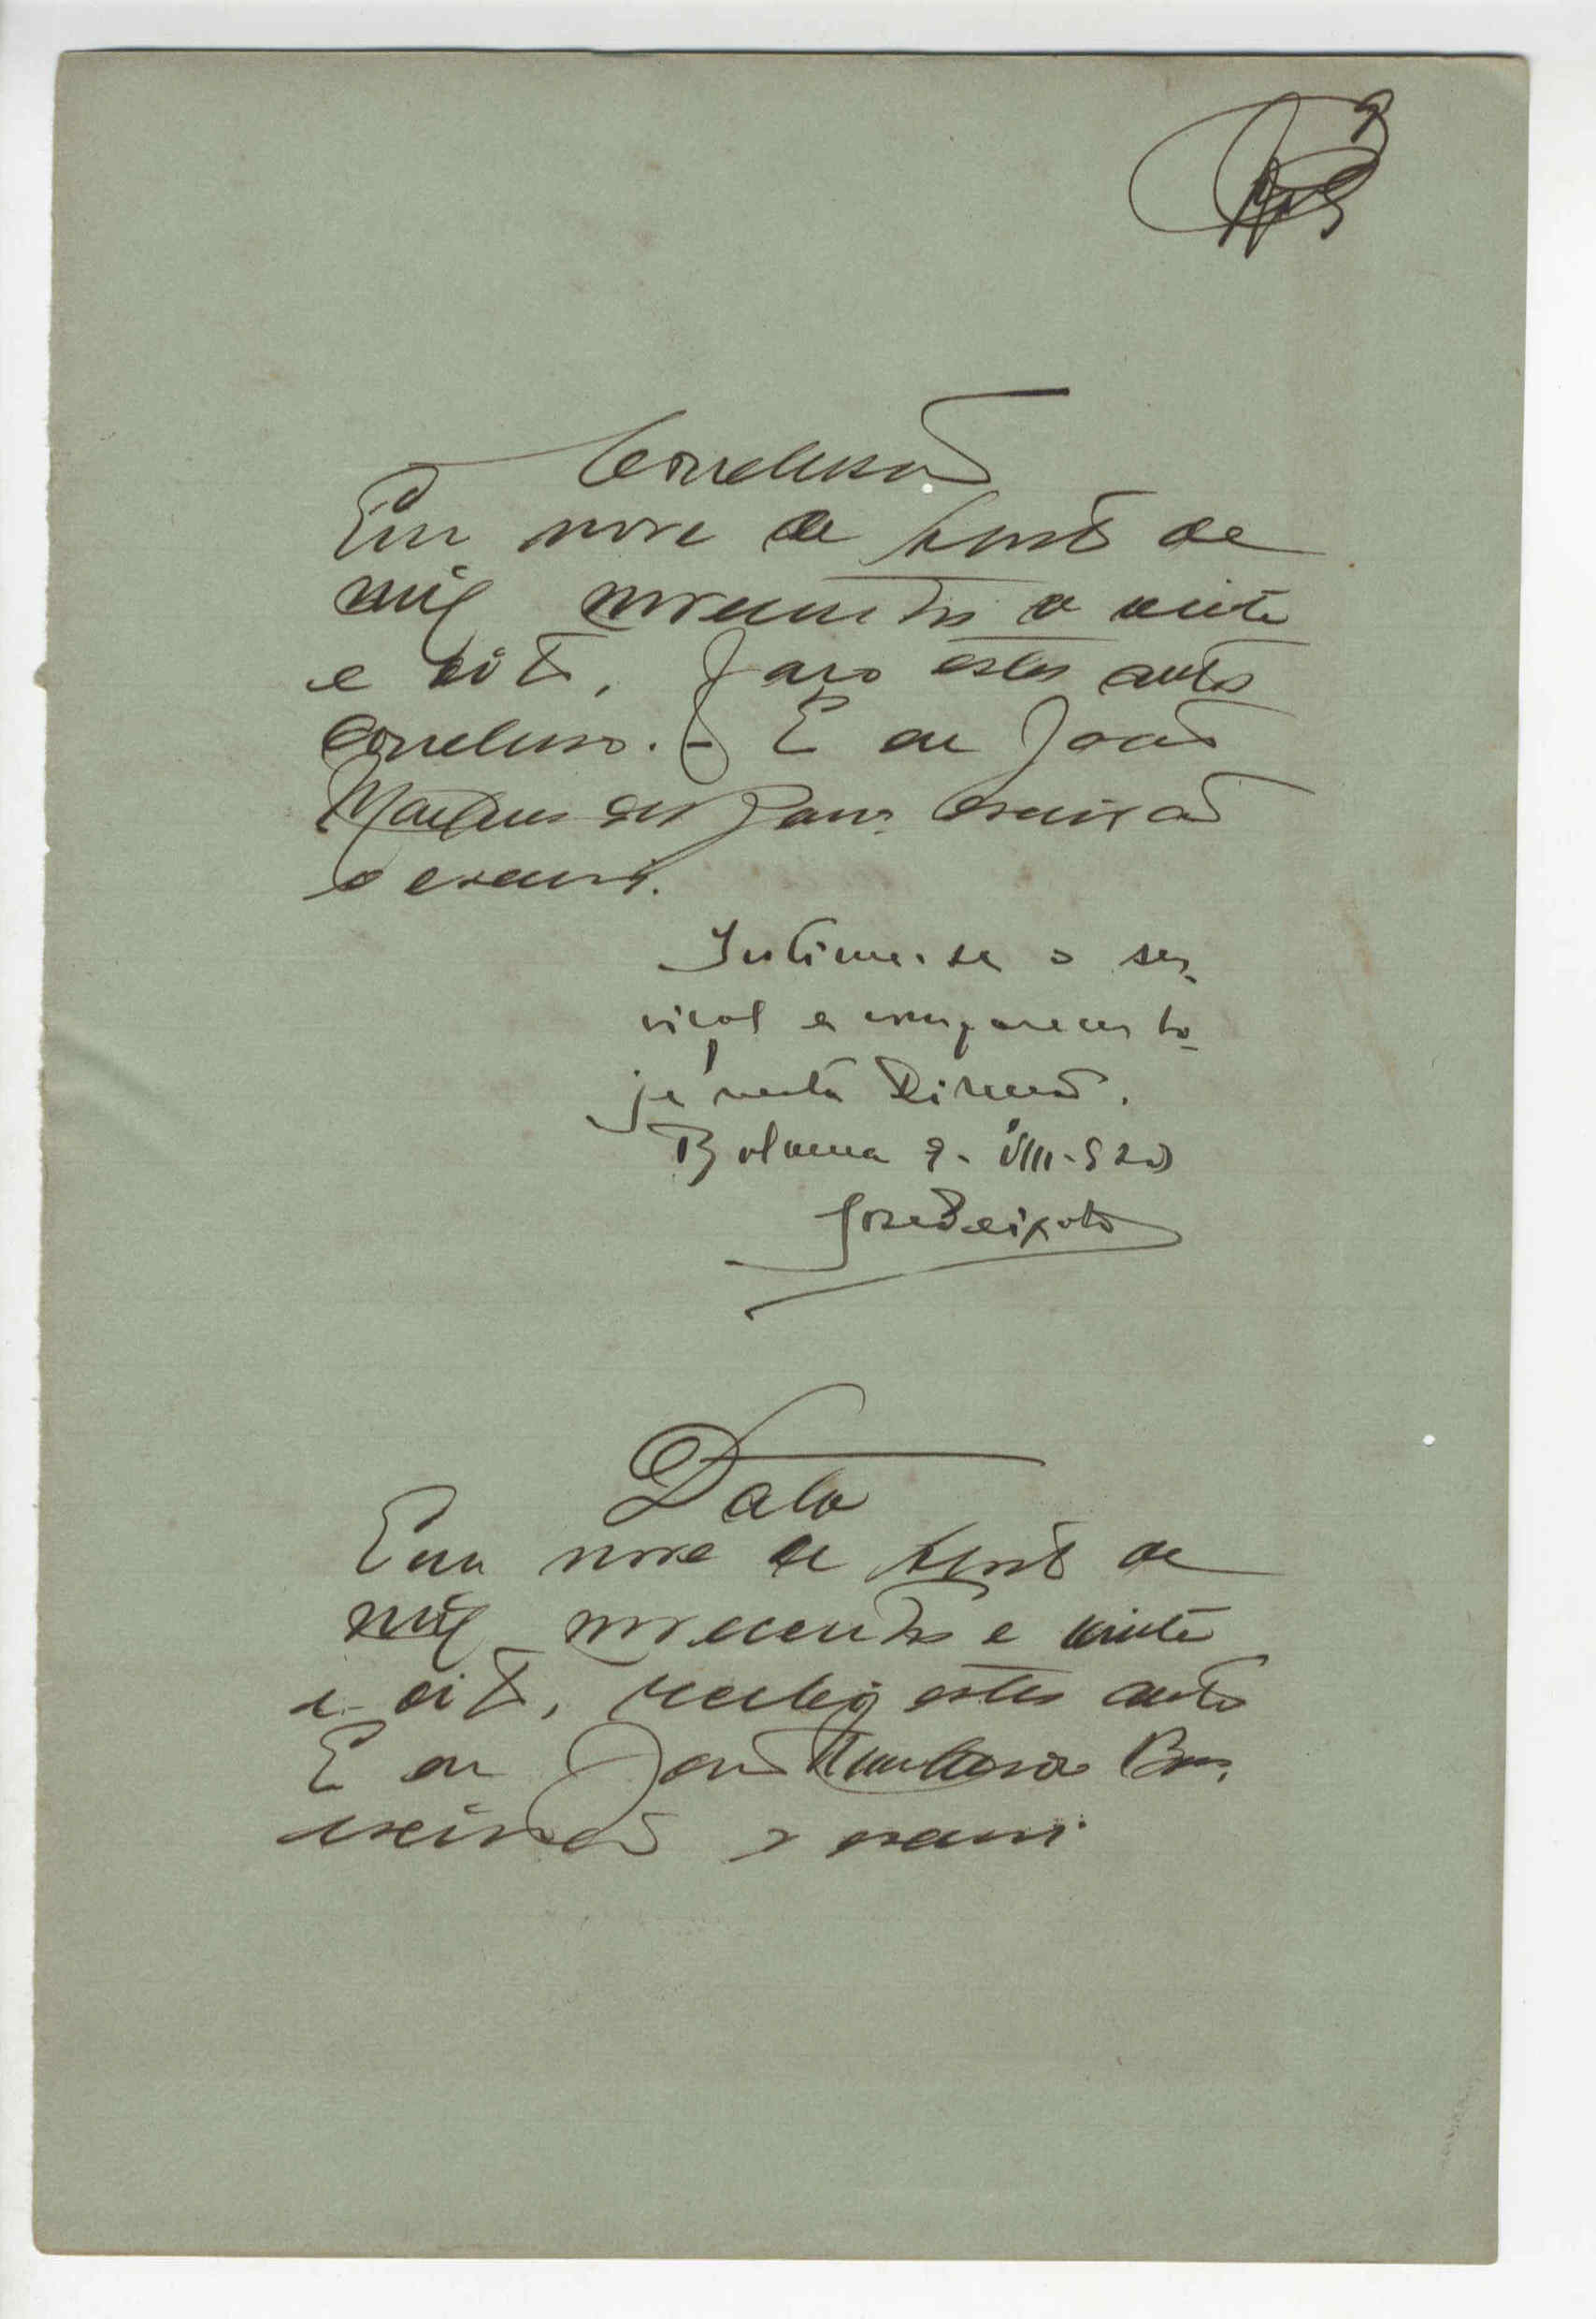 Conclusão
Em nove de Agosto de
mil novecentos e vinte
e oito, faço estes autos
conclusos. - E eu João
Marques escrivão
o escrevi.
Intime-se o ser-
viçal a comparecer ho-
je nesta Direcção.
Bolama 9-VIII-928
José Peixoto
Data
Em nove de Agosto de
mil novecentos e vinte
e oito, recebi estes autos
E eu João
escrivão o escrevi